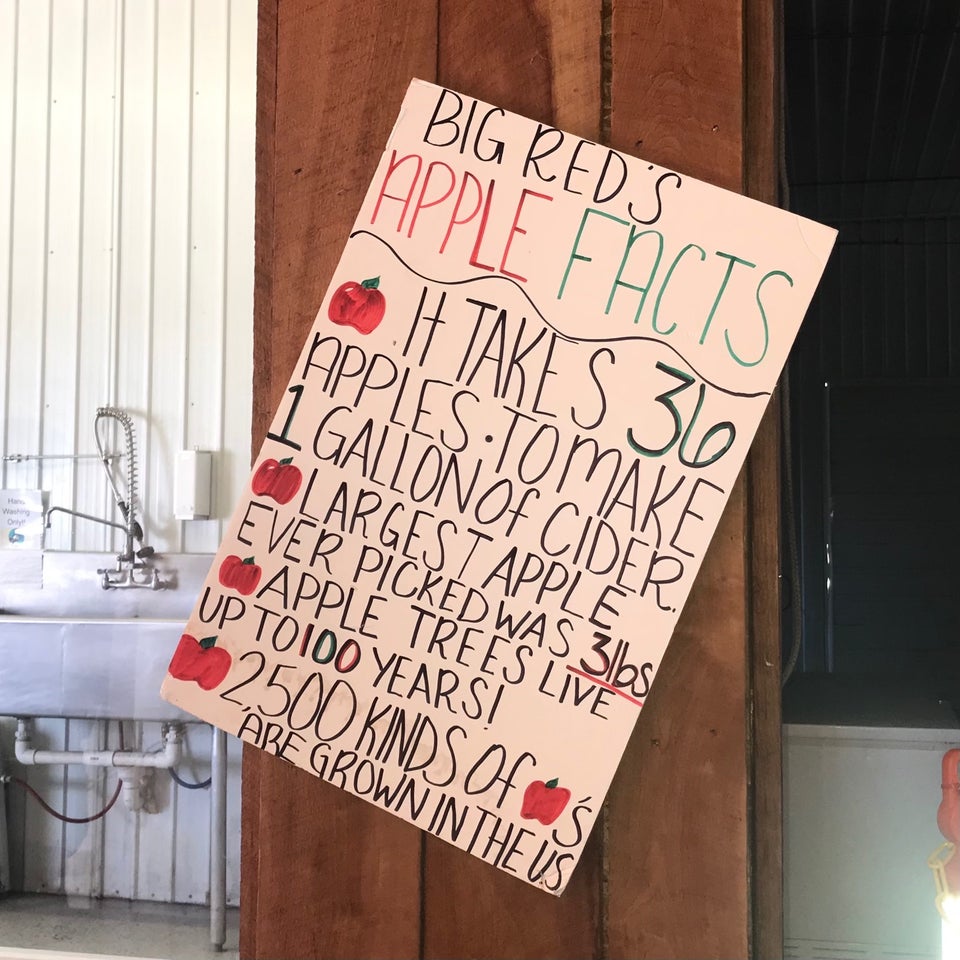 BIG RED'S
APPLE FACTS
IT TAKES 36
APPLES TO MAKE
1 GALLON OF CIDER.
LARGEST APPLE
EVER PICKED WAS 3lbs
APPLE TREES LIVE
UP TO 100 YEARS!
2500 KINDS OF 'S
ARE GROWN IN THE U.S
Hand
Washing
Only!!